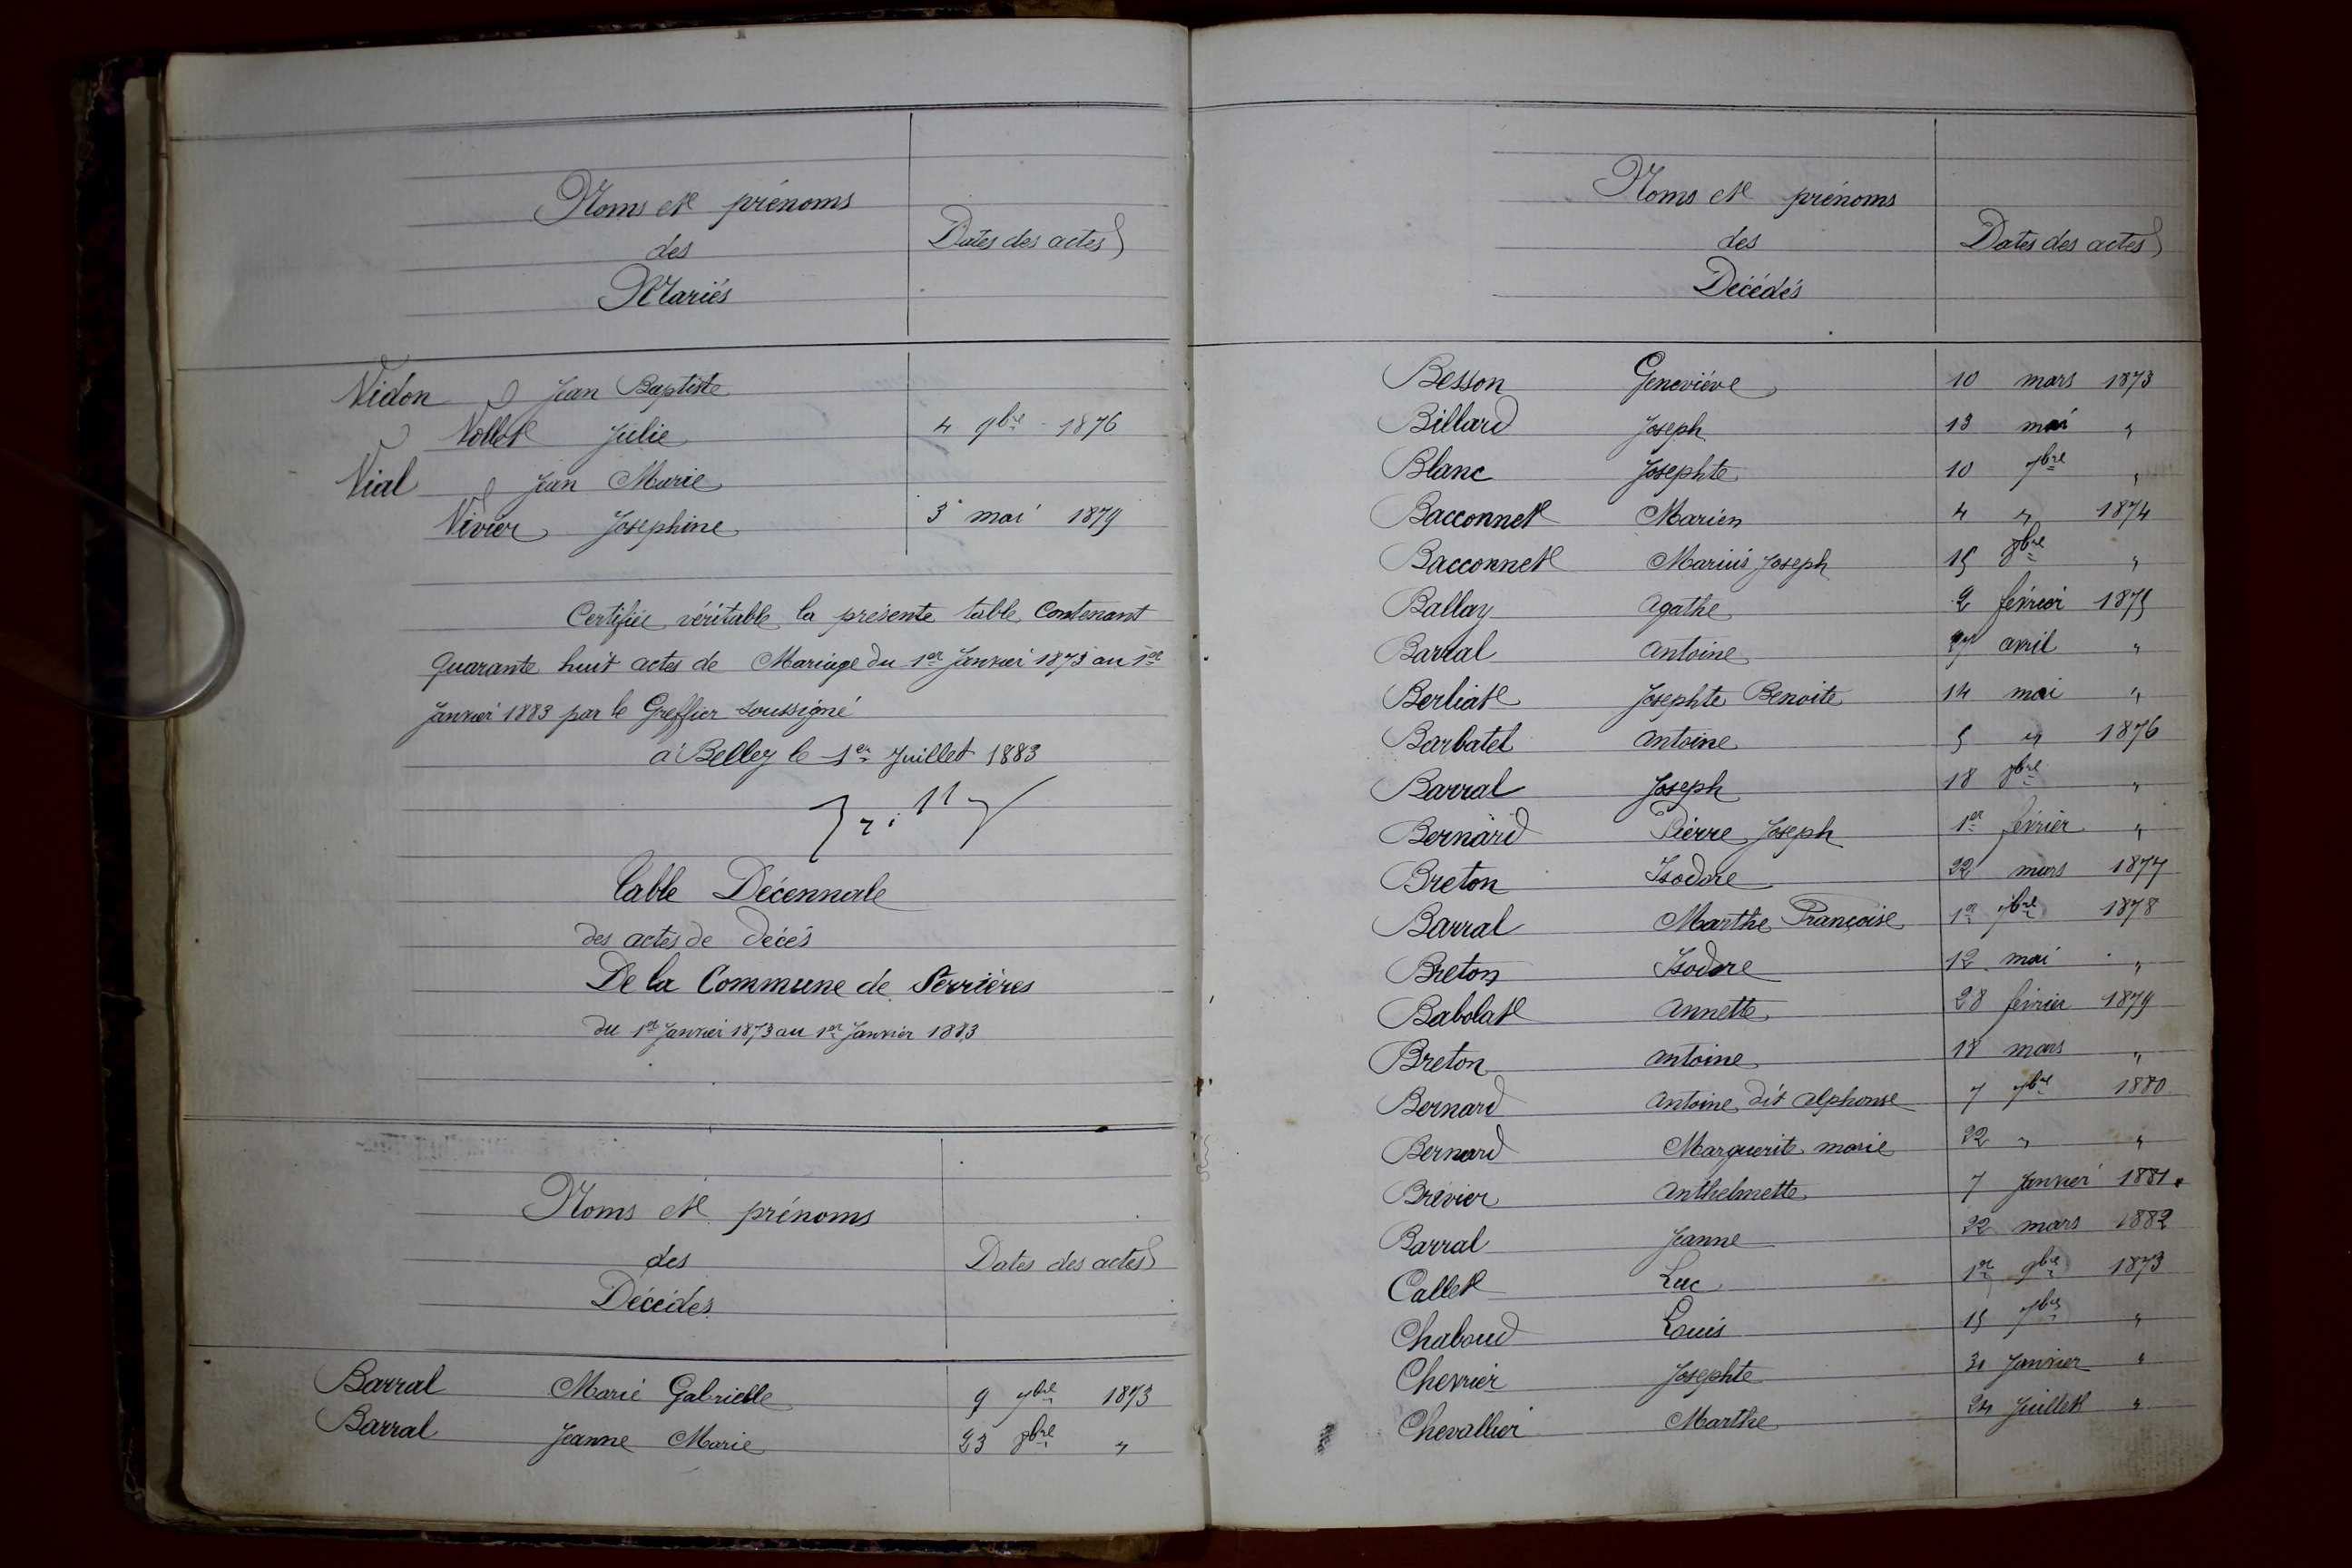 Noms et prénoms
des
Mariés
Dates des actes
Vidon Jean Baptiste
Vollet Julie 4 9bre 1876
Vial Jean Marie
Vivier Josephine 3 mai 1879
Certifiée véritable la présente table Contenant
quarante huit actes de Mariage du 1er Janvier 1873 au 1er
Janvier 1883 par le Greffier soussigné
à Belley le 1er Juillet 1883
Table Décennale
des actes de décés
De la Commune de Serrières
du 1er Janvier 1873 au 1er Janvier 1883
Noms et prénoms
des
Décédes
Dates des actes
Barral Marie Gabrielle 9 7bre 1873
Barral Jeanne Marie 23 8bre "
Noms et prénoms
des
Décédés
Dates des actes
Besson Geneviéve 10 mars 1873
Billard Joseph 13 mai "
Blanc Josephte 10 7bre "
Bacconnet Marien 4 " 1874
Bacconnet Marius Joseph 15 8bre "
Ballay Agathe 2 février 1875
Barral Antoine 27 avril "
Berliat Josephte Benoite 14 mai "
Barbatet Antoine 5 " 1876
Barral Joseph 18 8bre "
Bernard Pierre Joseph 1er février "
Breton Isodore 22 mars 1877
Barral Marthe Françoise 1er 7bre 1878
Breton Isodore 12 mai "
Babolat Annette 28 février 1879
Breton Antoine 18 mars "
Bernard Antoine dit Alphonse 7 7bre 1880
Bernard Marguerite Marie 22 " "
Brevier Anthelmette 7 Janvier 1881
Barral Jeanne 22 mars 1882
Callet Luc 1er 9bre 1873
Chaboud Louis 15 7bre "
Chevrier Josephte 31 Janvier "
Chevallier Marthe 24 Juillet "